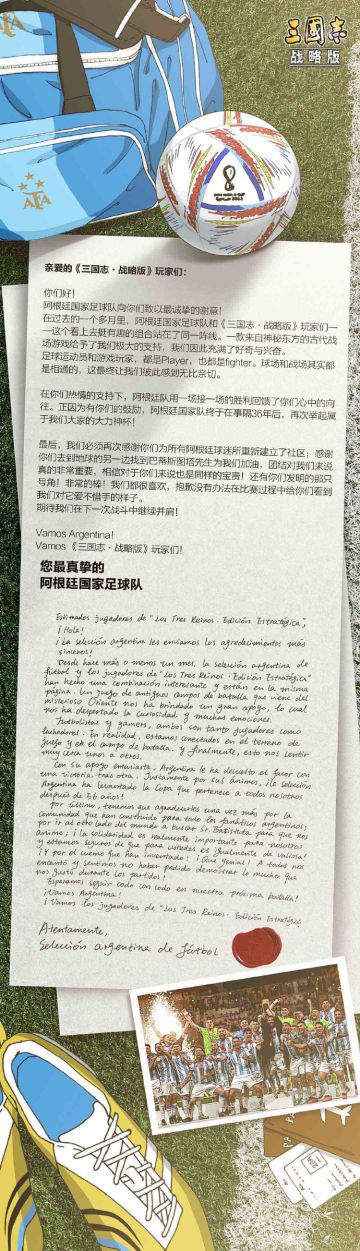 三國志
战略版
AFA
AFA
亲爱的《三国志·战略版》玩家们：
你们好！
阿根廷国家足球队向你们致以最诚挚的谢意！
在过去的一个多月里，阿根廷国家足球队和《三国志·战略版》玩家们一
一这个看上去挺有趣的组合站在了同一阵线。一款来自神秘东方的古代战
场游戏给予了我们极大的支持，我们因此充满了好奇与兴奋。
足球运动员和游戏玩家，都是Player，也都是fighter。球场和战场其实都
是相通的，这最终让我们彼此感到无比亲切。
在你们热情的支持下，阿根廷队用一场接一场的胜利回馈了你们心中的向
往。正因为有你们的鼓励，阿根廷国家队终于在事隔36年后，再次举起属
于我们大家的大力神杯！
最后，我们必须再次感谢你们为所有阿根廷球迷所重新建立了社区；感谢
你们去到地球的另一边找到巴蒂斯图塔先生为我们加油，团结对我们来说
真的非常重要，相信对于你们来说也是同样的宝贵！还有你们发明的那只
号角！非常的棒！我们都很喜欢，抱歉没有办法在比赛过程中给你们看到
我们对它爱不惜手的样子。
期待我们在下一次战斗中继续并肩！
Vamos Argentina！
Vamos 《三国志·战略版》玩家们！
您最真挚的
阿根廷国家足球队
Estimados jugadores de "Los Tres Reinos · Edición Estratégica",
¡Hola!
¡La selección argentina les enviamos los agradecimientos más
sinceros!
Desde hace más o menos un mes, la selección argentina de
fútbol y los jugadores de "Los Tres Reinos · Edición Estratégica"
han hecho una combinación interesante y están en la misma
página. Un juego de antiguos campos de batalla que viene del
misterioso Oriente nos ha brindado un gran apoyo, lo cual
nos ha despertado la curiosidad y muchas emociones.
Futbolistas y gamers, ambos son tanto jugadores como
luchadores. En realidad, estamos conectados en el terreno de
juego y en el campo de batalla. Y finalmente, esto nos sentir
muy cerca unos a otros.
Con su apoyo entusiasta, Argentina le ha devuelto el favor con
una victoria tras otra. Justamente por sus ánimos, ¡la Selección
Argentina ha levantado la Copa que pertenece a todos nosotros
después de 36 años!
Por último, tenemos que agradecerles una vez más por la
comunidad que han construido para todo los fanáticos argentinos;
por ir al otro lado del mundo a buscar Sr. Batistuta para que nos
anime; ¡La solidaridad es realmente importante para nosotros
y estamos seguros de que para ustedes es igualmente de valiosa!
¡Y por el cuerno que han inventado! ¡Qué genial! A todos nos
encantó y sentimos no haber podido demostrar lo mucho que
nos gustó durante los partidos!
Esperamos seguir codo con codo en nuestra próxima batalla!
¡Vamos Argentina!
¡Vamos los jugadores de "Los Tres Reinos · Edición Estratégica"
Atentamente,
Selección argentina de fútbol